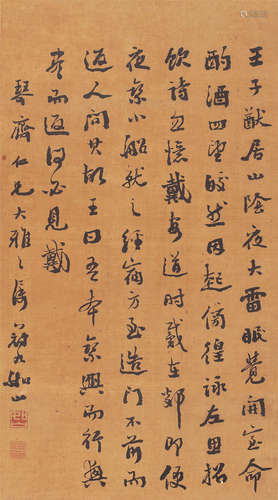 王子猷居山陰夜大雪眠覺開室命
酌酒四望皎然因起彷徨詠左思招
隱詩忽憶戴安道時戴在剡即便
夜乘小船就之經宿方至造門不前而
返人問其故王曰吾本乘興而行興
盡而返何必見戴
琴齋仁兄大雅之屬 如山